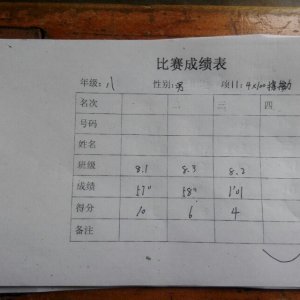 比赛成绩表
年级：八 性别：男 项目：4×100接力
名次 一 二 三 四
号码
姓名
班级 8.1 8.3 8.2
成绩 57" 58" 1'01
得分 10 6 4
备注